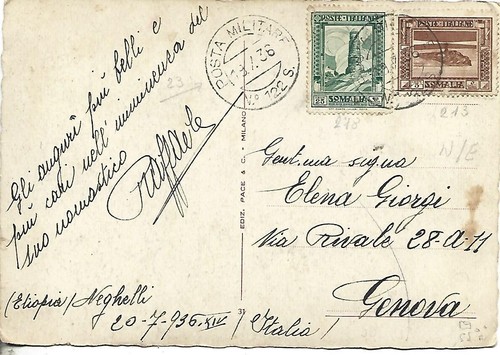 POSTA MILITARE
Nº 122 S.
POSTE ITALIANE
SOMALIA
POSTE ITALIANE
SOMALIA
23
248
213
N/E
Gli auguri più belli e
più cari nell'imminenza del
suo onomastico
Raffaele
(Etiopia) Neghelli
20-7-936-XIV
EDIZ. PACE & C. - MILANO
31
Gent.ma signa
Elena Giorgi
Via Rivale 28-A-11
Genova
(Italia)